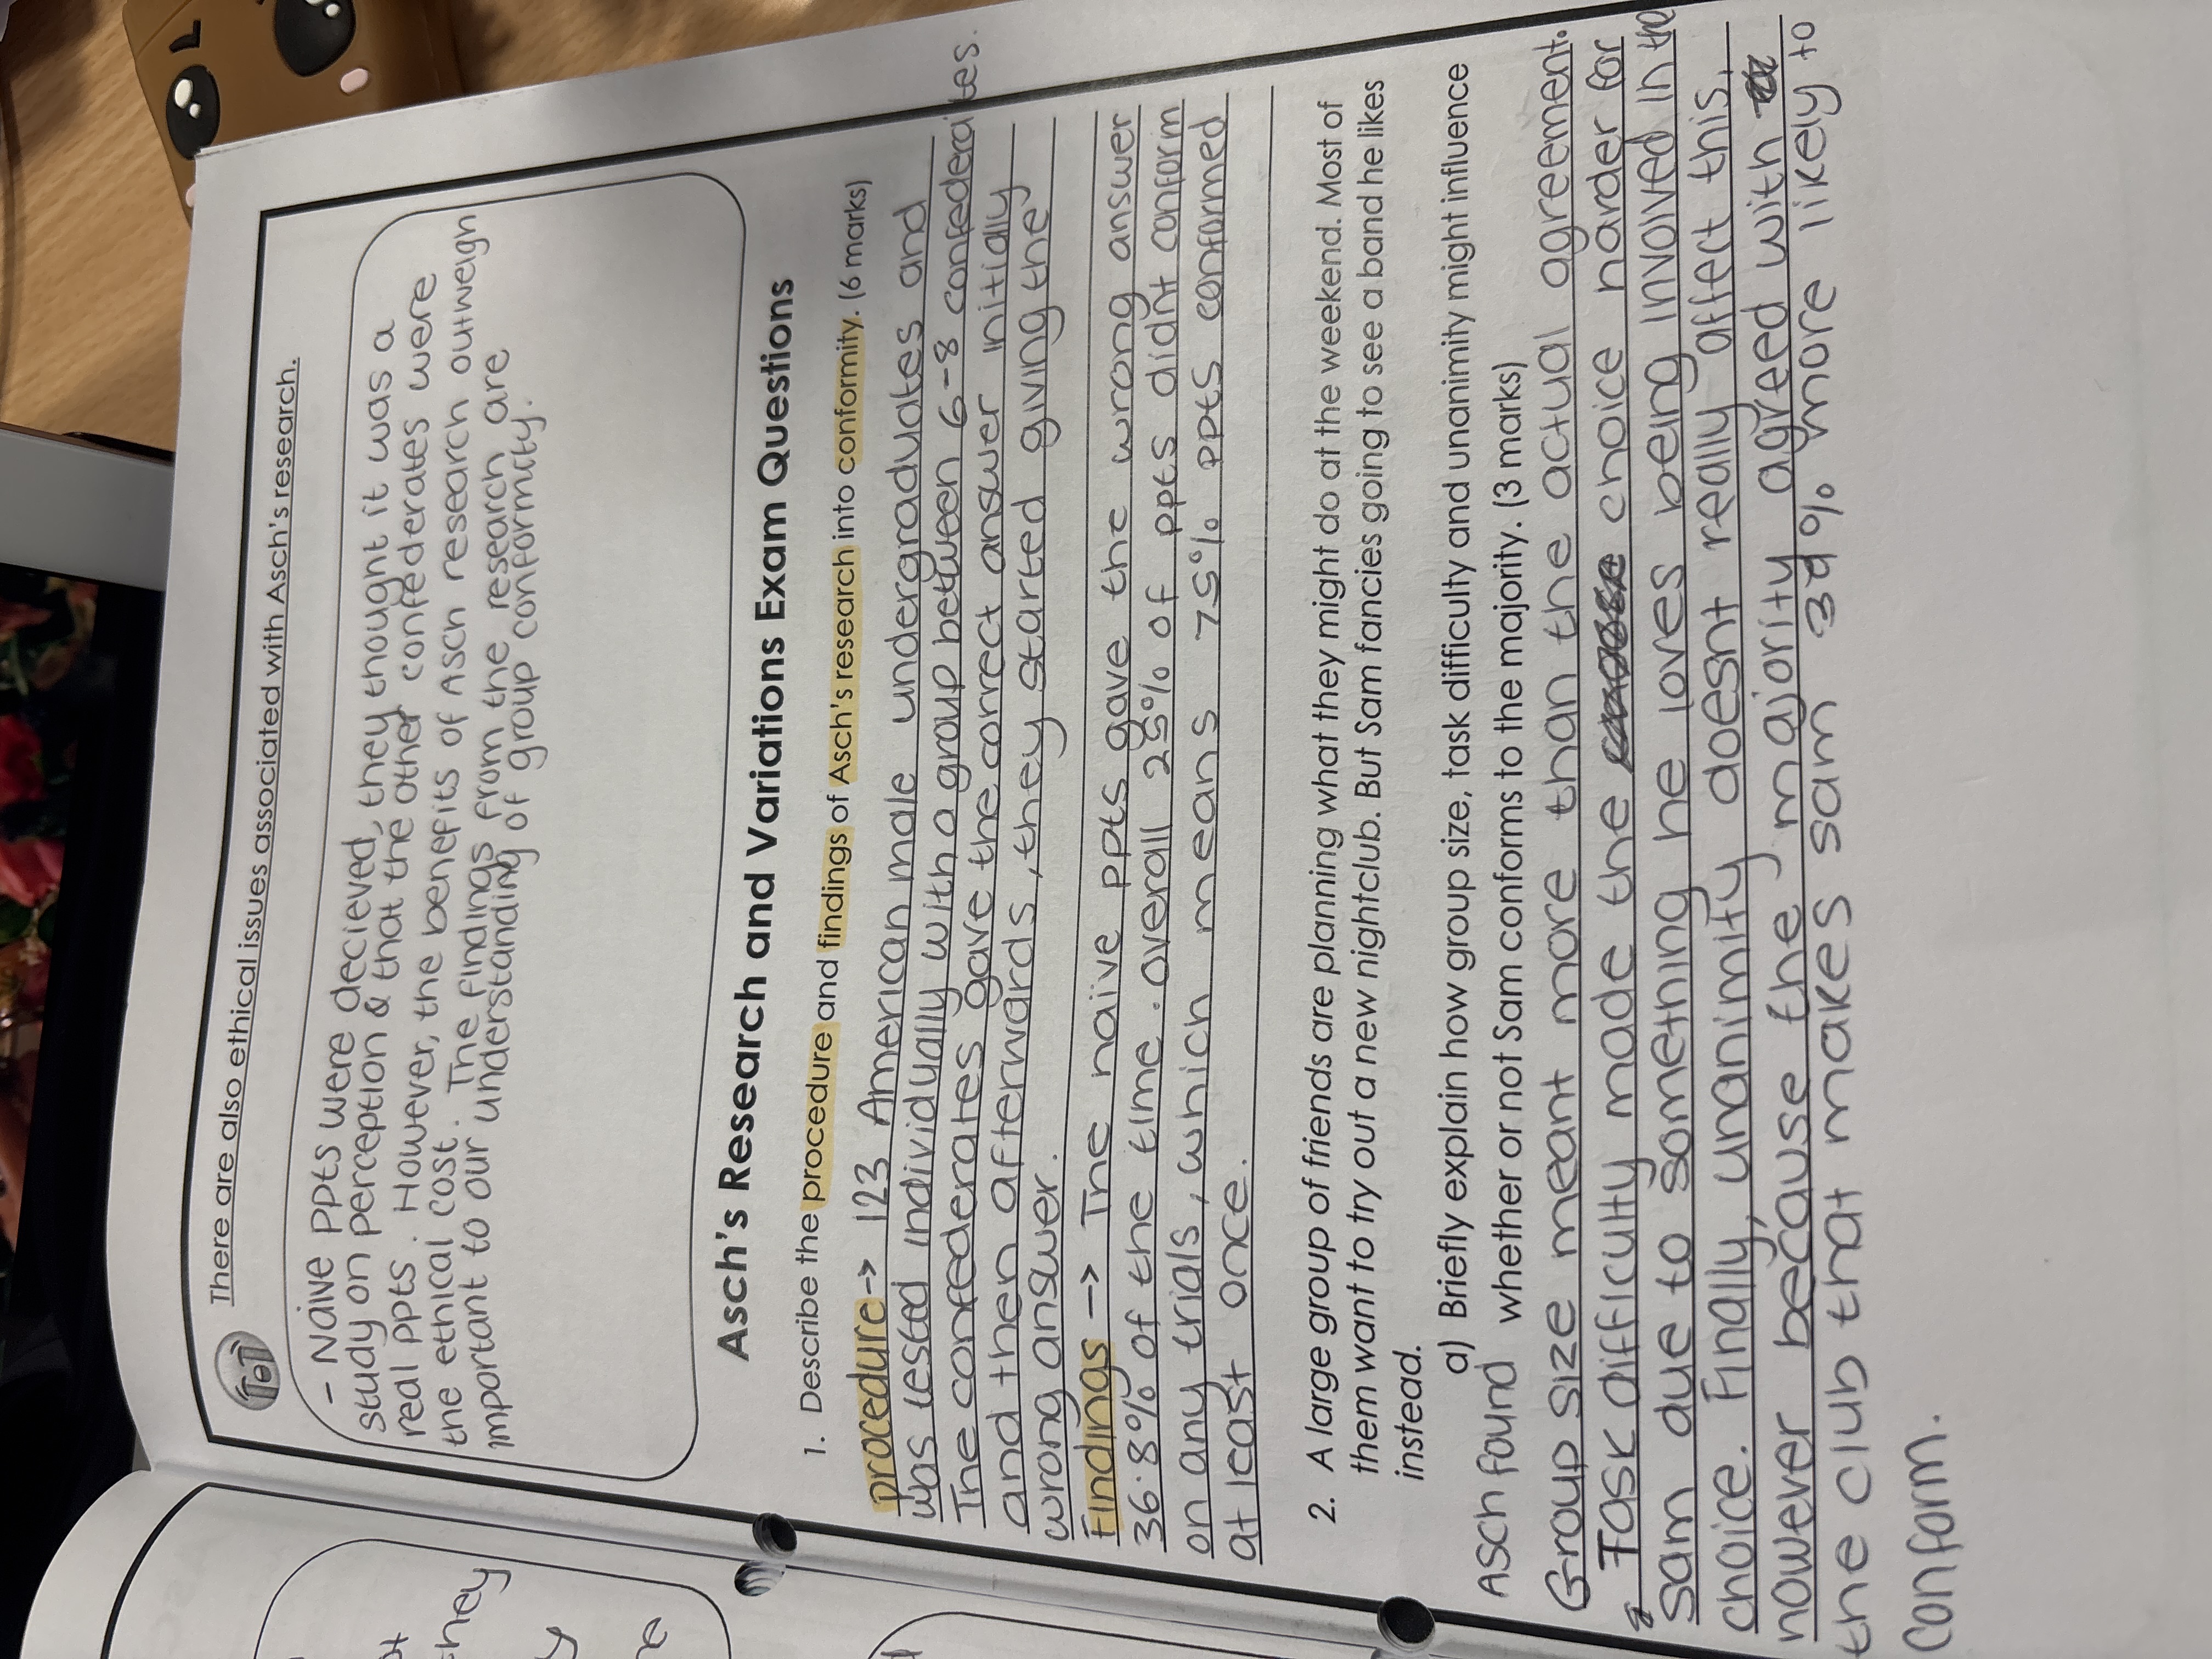 There are also ethical issues associated with Asch's research.
TOT
- Naive PPts were decieved, they thought it was a
study on perception & that the other confederates were
real PPts. However, the benefits of Asch research outweigh
the ethical cost. The findings from the research are
important to our understanding of group conformity.
Asch's Research and Variations Exam Questions
1. Describe the procedure and findings of Asch's research into conformity. (6 marks)
procedure -> 123 American male undergraduates and
was tested individually with a group between 6-8 confederates.
The confederates gave the correct answer initially
and then afterwards, they started giving the
wrong answer.
Findings -> The naive ppts gave the wrong answer
36.8% of the time. overall 25% of ppts didnt conform
on any trials, which means 75% ppts conformed
at least once.
2. A large group of friends are planning what they might do at the weekend. Most of
them want to try out a new nightclub. But Sam fancies going to see a band he likes
instead.
a) Briefly explain how group size, task difficulty and unanimity might influence
whether or not Sam conforms to the majority. (3 marks)
Asch found
Group size meant more than the actual agreement.
Task difficulty made the choice harder for
sam due to something he loves being involved in the
choice. Finally, unanimity doesnt really affect this,
however because the majority agreed with
the club that makes sam 3% more likely to
conform.
they